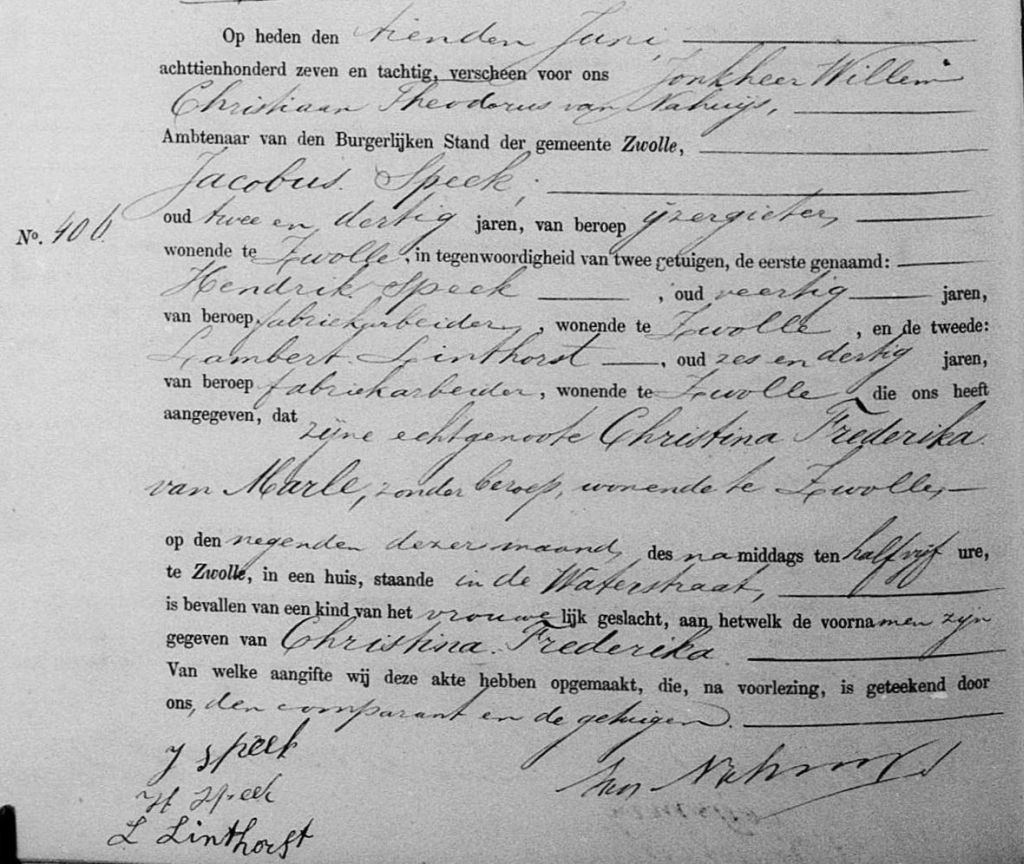 Op heden den tienden Juni,
achttienhonderd zeven en tachtig, verscheen voor ons Jonkheer Willem
Christiaan Theodorus van Nahuijs,
Ambtenaar van den Burgerlijken Stand der gemeente Zwolle,
Jacobus Speek,
oud twee en dertig jaren, van beroep ijzergieter,
No. 406.
wonende te Zwolle, in tegenwoordigheid van twee getuigen, de eerste genaamd:
Hendrik Speek, oud veertig jaren,
van beroep fabriekarbeider, wonende te Zwolle, en de tweede:
Lambert Linthorst, oud zes en dertig jaren,
van beroep fabriekarbeider, wonende te Zwolle, die ons heeft
aangegeven, dat zijne echtgenoote Christina Frederika
van Marle, zonder beroep, wonende te Zwolle,
op den negenden dezer maand, des namiddags ten half vijf ure,
te Zwolle, in een huis, staande in de Waterstraat,
is bevallen van een kind van het vrouwelijk geslacht, aan hetwelk de voornamen zijn
gegeven van Christina Frederika.
Van welke aangifte wij deze akte hebben opgemaakt, die, na voorlezing, is geteekend door
ons, den comparant en de getuigen.
J Speek
H Speek
van Nahuijs
L Linthorst